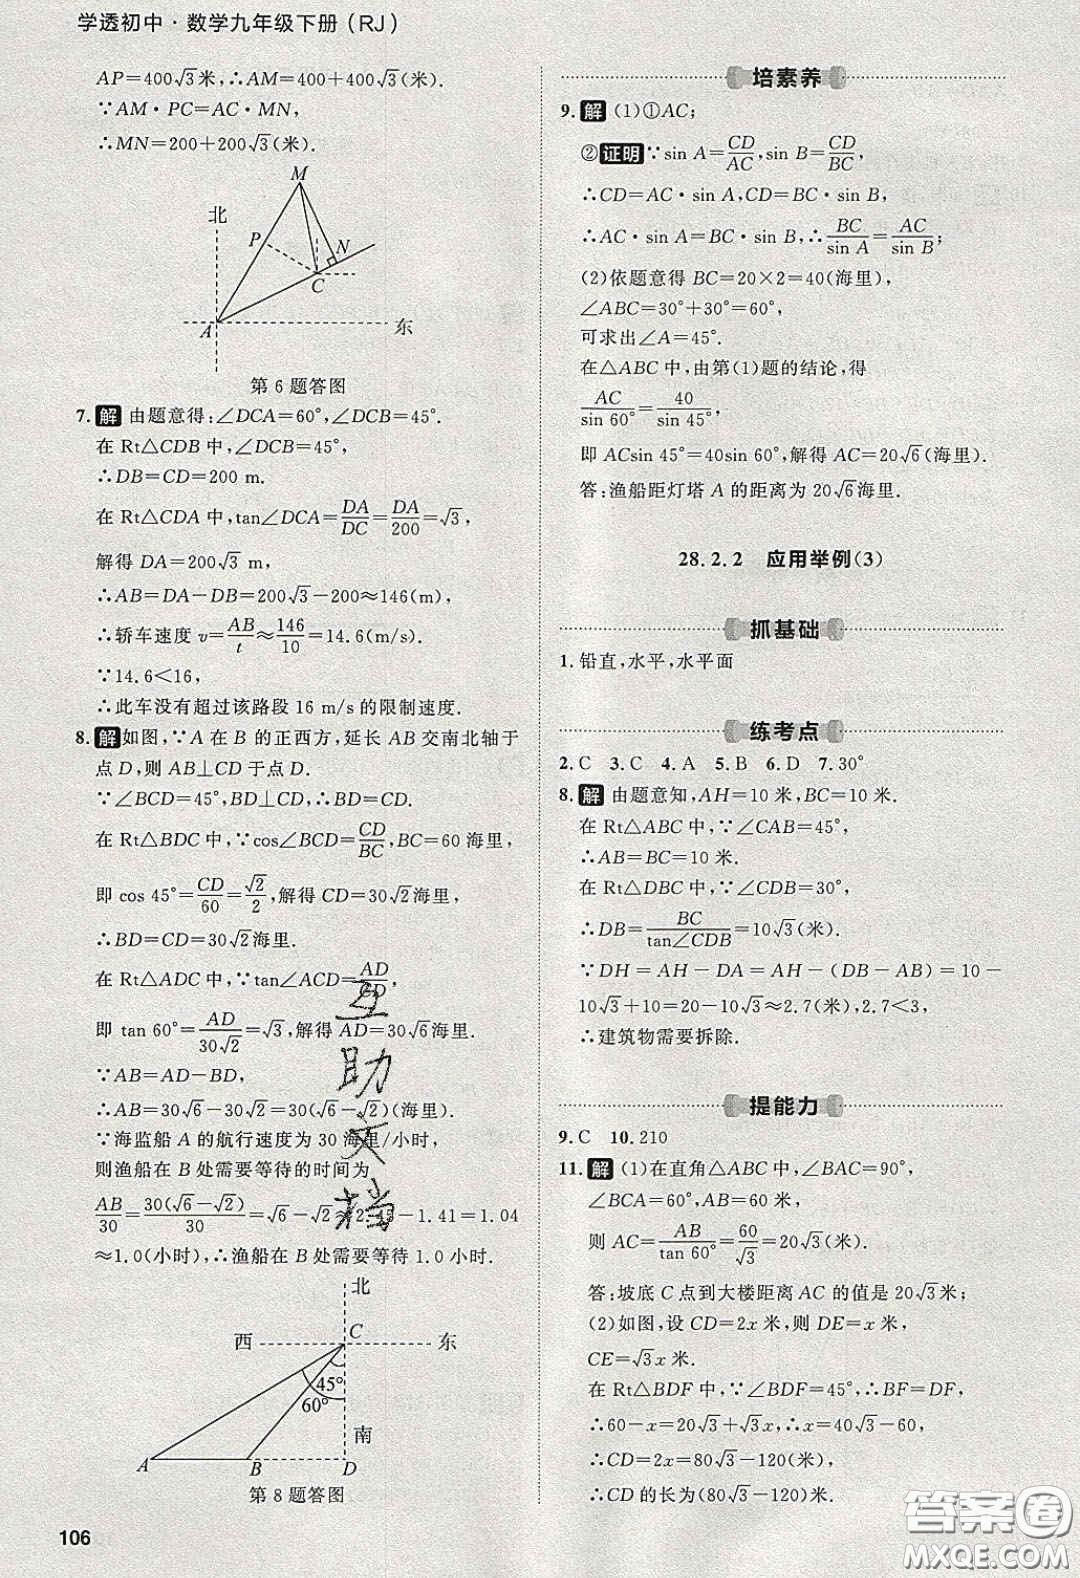 学透初中·数学九年级下册(RJ)
AP=400√3米,∴AM=400+400√3(米).
∵AM·PC=AC·MN,
∴MN=200+200√3(米).
M
北
P
N
C
A
东
第6题答图
7.解 由题意得:∠DCA=60°,∠DCB=45°.
在 Rt△CDB 中,∠DCB=45°,
∴DB=CD=200 m.
在 Rt△CDA 中,tan∠DCA=DA/DC=DA/200=√3,
解得 DA=200√3 m,
∴AB=DA-DB=200√3-200≈146(m),
∴轿车速度 v=AB/t≈146/10=14.6(m/s).
∵14.6<16,
∴此车没有超过该路段 16 m/s的限制速度.
8.解 如图,∵A 在 B 的正西方,延长 AB 交南北轴于
点 D,则 AB⊥CD 于点 D.
∵∠BCD=45°,BD⊥CD,∴BD=CD.
在 Rt△BDC 中,∵cos∠BCD=CD/BC,BC=60 海里,
即 cos 45°=CD/60=√2/2,解得 CD=30√2海里,
∴BD=CD=30√2海里.
在 Rt△ADC 中,∵tan∠ACD=AD/CD,
即 tan 60°=AD/30√2=√3,解得 AD=30√6海里.
∵AB=AD-BD,
∴AB=30√6-30√2=30(√6-√2)(海里).
∵海监船 A 的航行速度为 30 海里/小时,
则渔船在 B 处需要等待的时间为
AB/30=30(√6-√2)/30=√6-√2≈2.45-1.41=1.04
≈1.0(小时),∴渔船在 B 处需要等待 1.0 小时.
北
西
C
东
45°
60°
南
A
B
D
第8题答图
106
互
助
文
档
培素养
9.解 (1)①AC;
②证明 ∵sin A=CD/AC,sin B=CD/BC,
∴CD=AC·sin A,CD=BC·sin B,
∴AC·sin A=BC·sin B,∴BC/sin A=AC/sin B;
(2)依题意得 BC=20×2=40(海里),
∠ABC=30°+30°=60°,
可求出∠A=45°.
在△ABC 中,由第(1)题的结论,得
AC/sin 60°=40/sin 45°,
即 ACsin 45°=40sin 60°,解得 AC=20√6(海里).
答:渔船距灯塔 A 的距离为 20√6海里.
28.2.2 应用举例(3)
抓基础
1.铅直,水平,水平面
练考点
2.C 3.C 4.A 5.B 6.D 7.30°
8.解 由题意知,AH=10 米,BC=10 米.
在 Rt△ABC 中,∵∠CAB=45°,
∴AB=BC=10 米.
在 Rt△DBC 中,∵∠CDB=30°,
∴DB=BC/tan∠CDB=10√3(米).
∵DH=AH-DA=AH-(DB-AB)=10-
10√3+10=20-10√3≈2.7(米),2.7<3,
∴建筑物需要拆除.
提能力
9.C 10.210
11.解 (1)在直角△ABC 中,∠BAC=90°,
∠BCA=60°,AB=60 米,
则 AC=AB/tan 60°=60/√3=20√3(米).
答:坡底 C 点到大楼距离 AC 的值是 20√3米;
(2)如图,设 CD=2x 米,则 DE=x 米,
CE=√3x 米.
在 Rt△BDF 中,∵∠BDF=45°,∴BF=DF,
∴60-x=20√3+√3x,∴x=40√3-60,
∴CD=2x=80√3-120(米),
∴CD 的长为(80√3-120)米.
答案圈
MXQE.COM